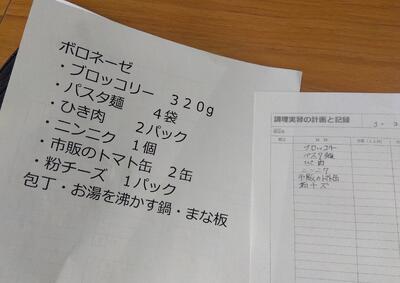 ボロネーゼ
・ブロッコリー　３２０g
・パスタ麺　４袋
・ひき肉　２パック
・ニンニク　１個
・市販のトマト缶　２缶
・粉チーズ　１パック
包丁・お湯を沸かす鍋・まな板
調理実習の計画と記録
ブロッコリー
パスタ麺
ひき肉
ニンニク
市販のトマト缶
粉チーズ